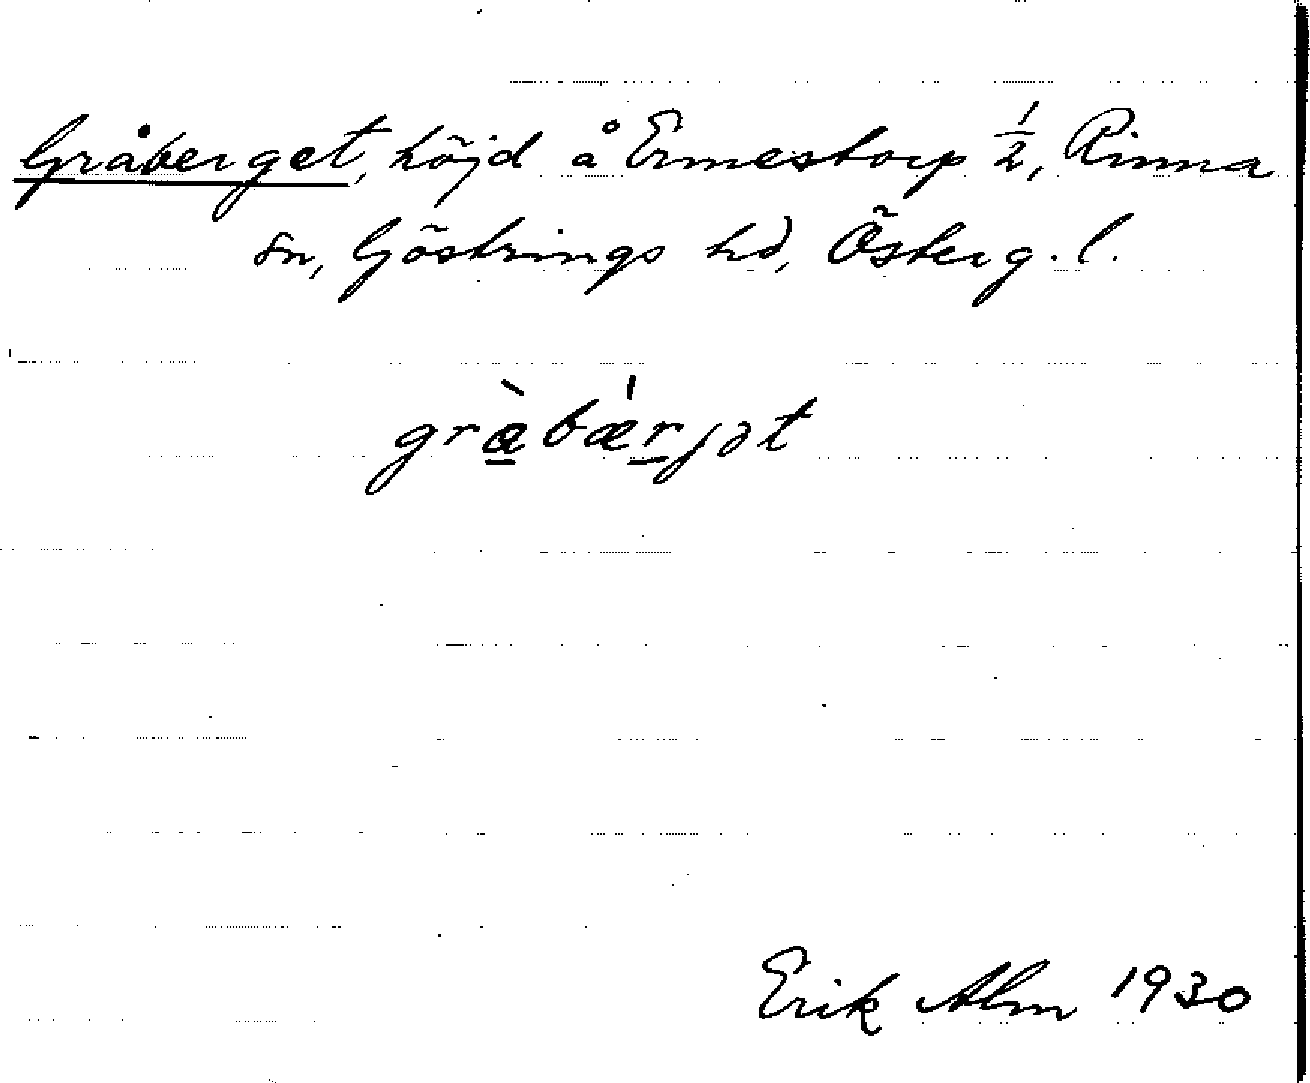 Gråberget, höjd å Ermestorp 1/2, Rinna
sn, Göstrings hd, Österg. l.
Erik Alm 1930